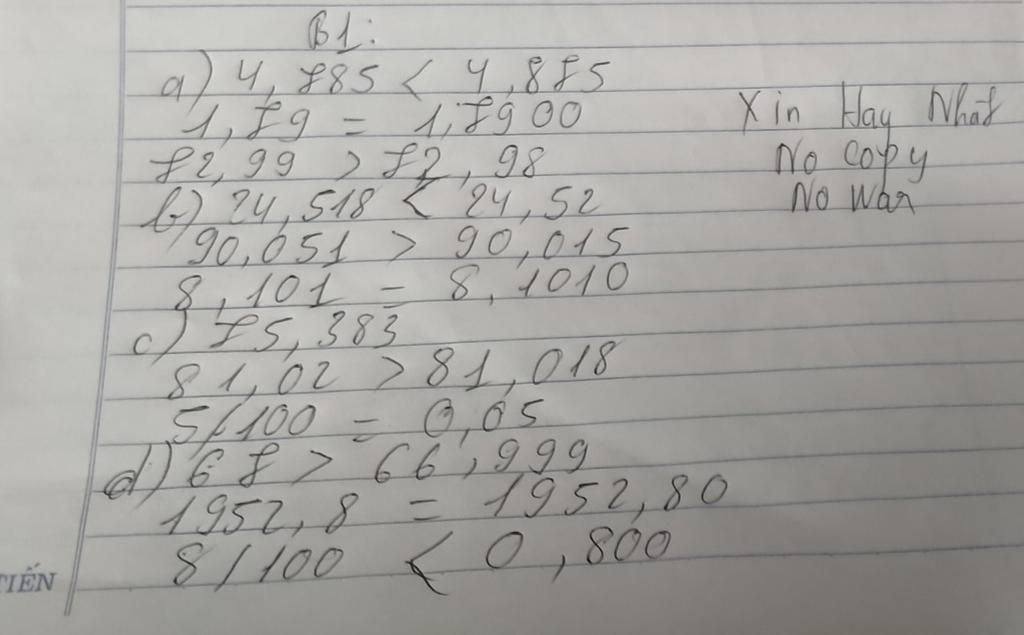 B1:
a) 4,785 < 4,875
1,79 = 1,7900
72,99 > 72,98
b) 24,518 < 24,52
90,051 > 90,015
8,101 = 8,1010
c) 75,383
81,02 > 81,018
5/100 = 0,05
d) 67 > 66,999
1952,8 = 1952,80
8/100 < 0,800
Xin Hay Nhất
No copy
No war
TIẾN